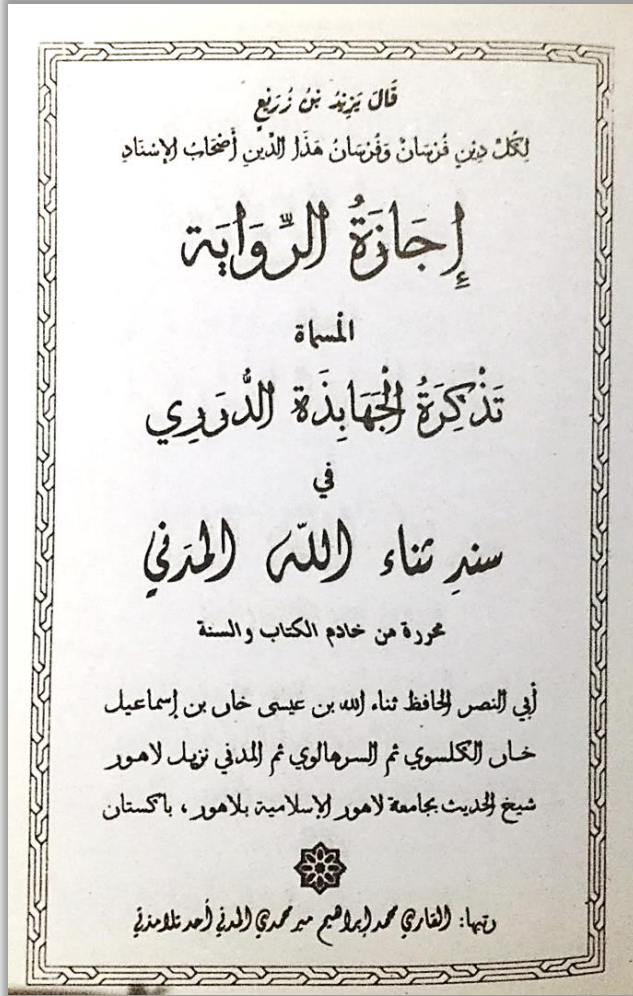 قَالَ يَزِيْدُ بْنُ زُرَيْعٍ
لِكُلِّ دِيْنٍ فُرْسَانٌ وَفُرْسَانُ هَذَا الدِّيْنِ أَصْحَابُ الإِسْنَادِ
إِجَازَةُ الرِّوَايَة
المُسماة
تَذْكِرَةُ الْجَهَابِذَة الدُّوَرِي
في
سندِ ثناء اللّه المَدَني
محررة من خادم الكتاب والسنة
أبي النصر الحافظ ثناء الله بن عيسى خان بن إسماعيل
خان الكلسوي ثم السرهالوي ثم المدني نزيل لاهور
شيخ الحديث بجامعة لاهور الإسلامية بلاهور، باكستان
رتبها: القاري محمد إبراهيم مير محمدي المدني أحد تلامذتي